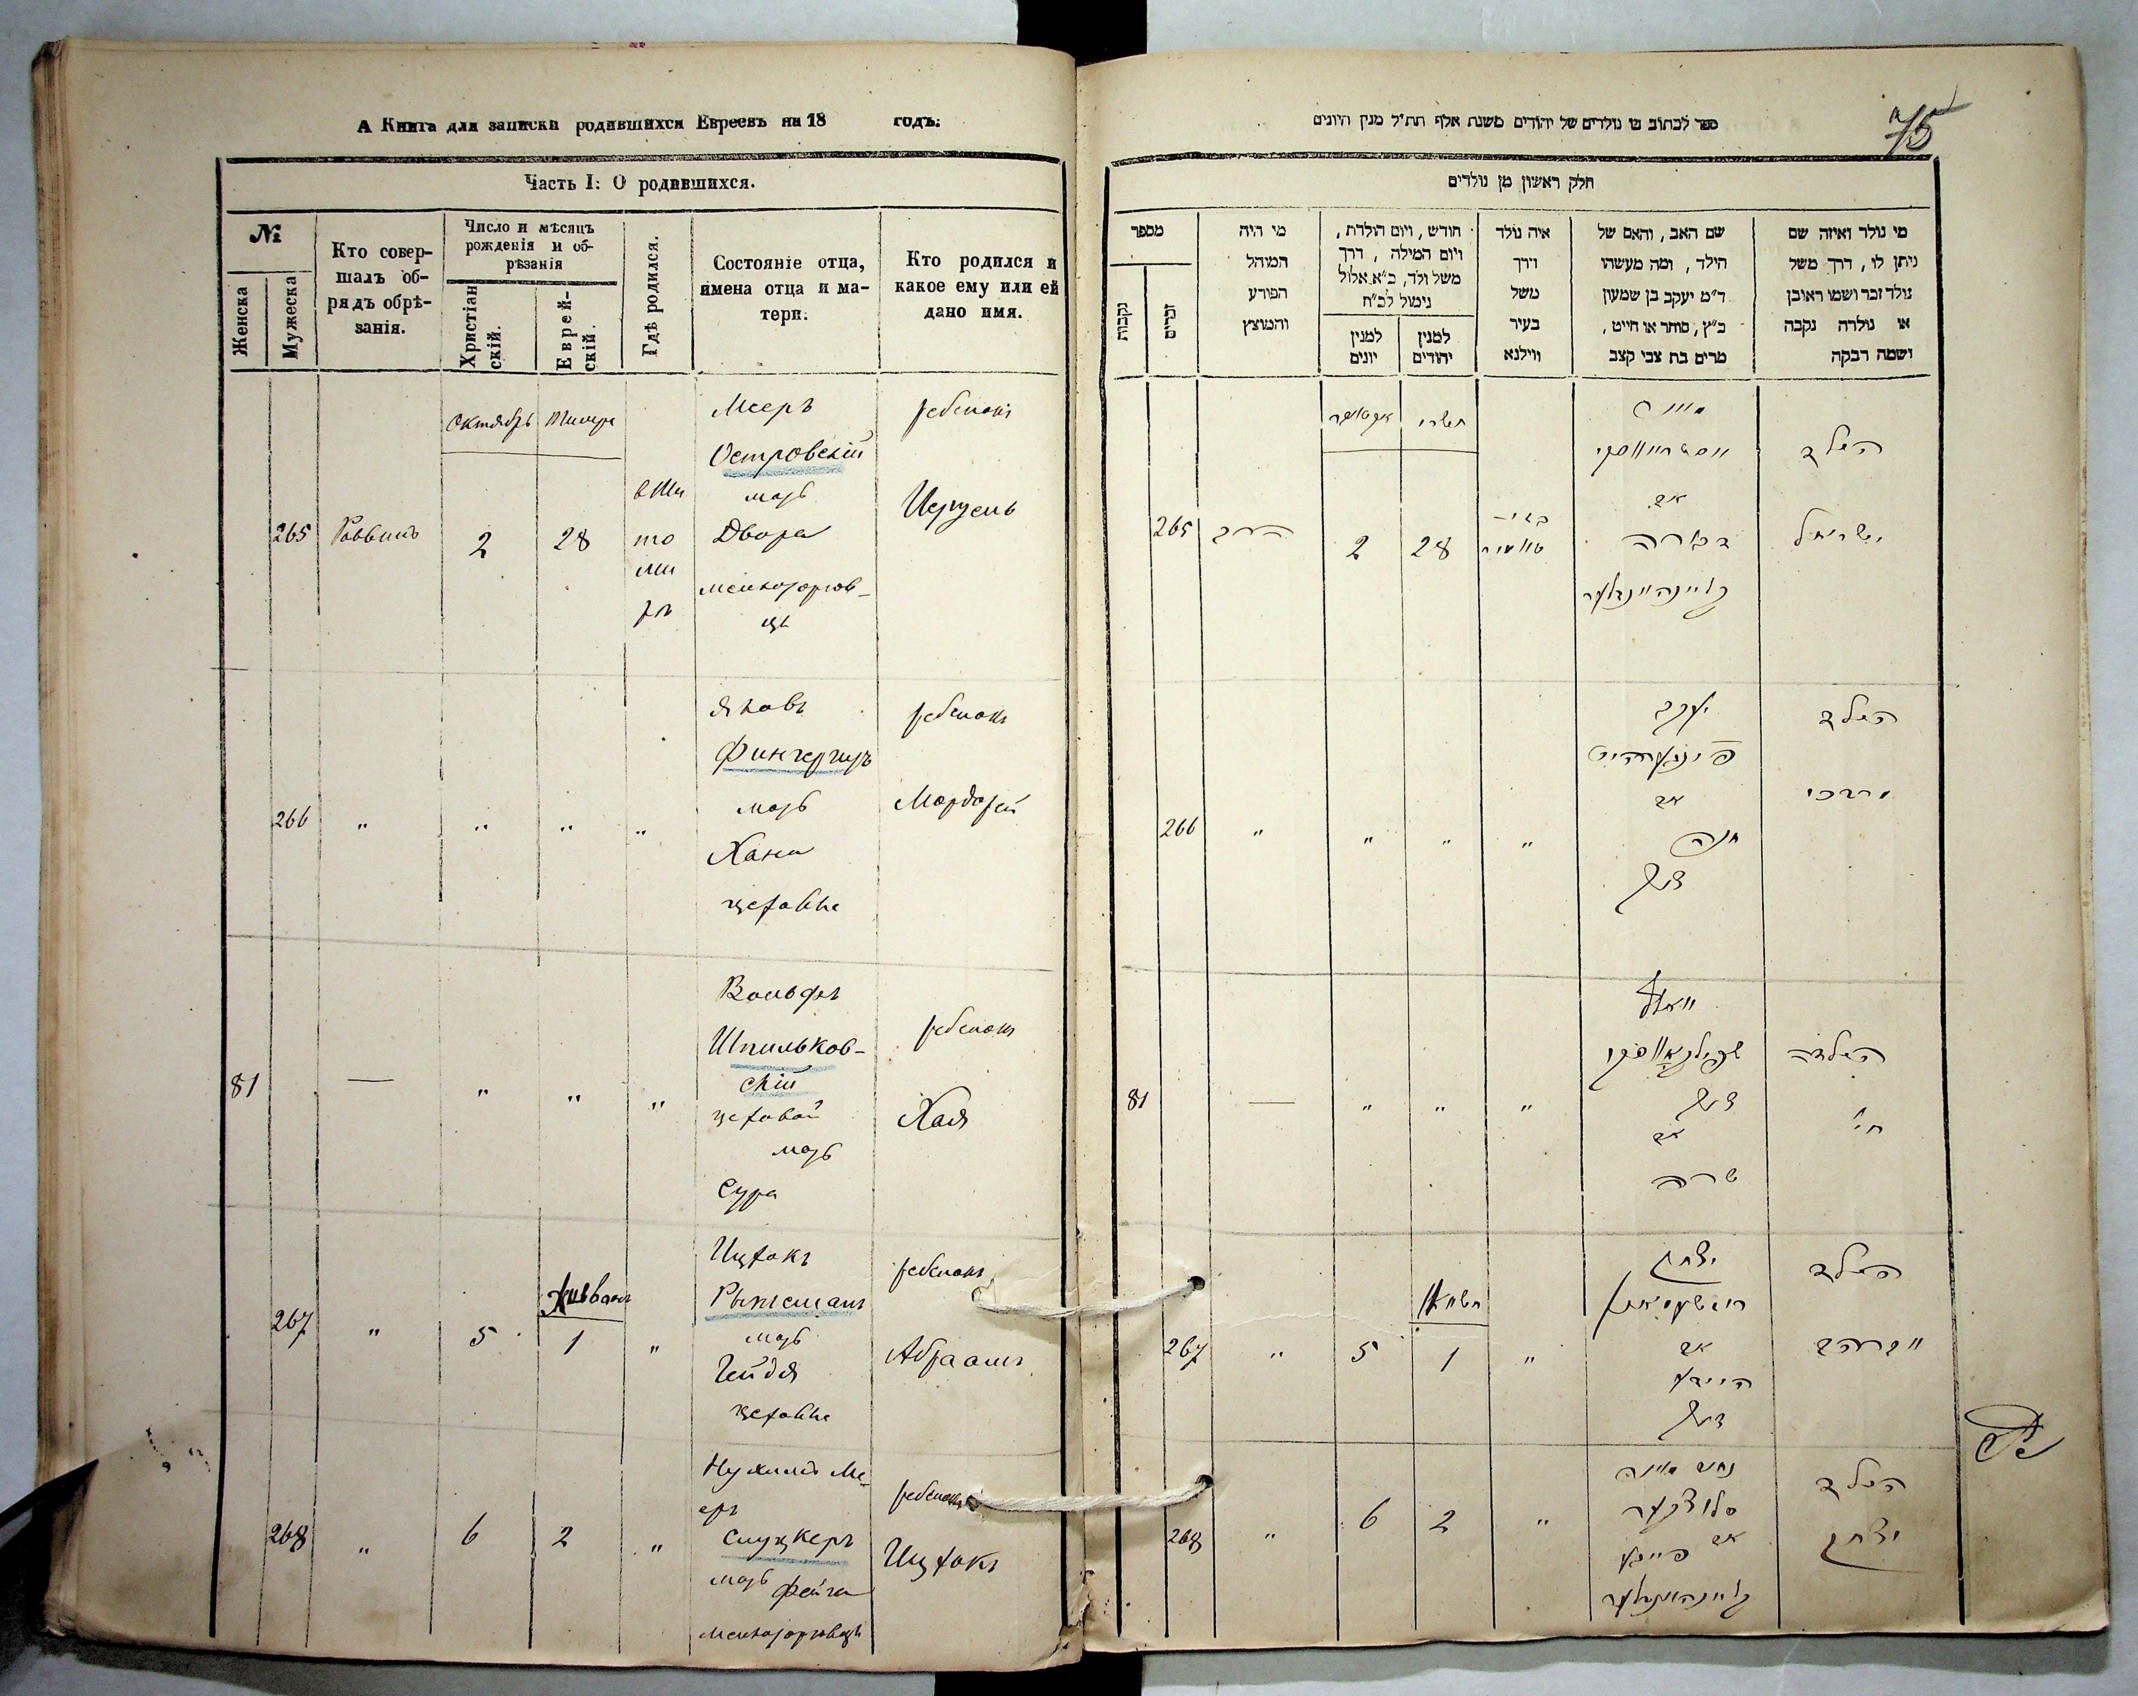 А Книга для записки родившихся Евреевъ на 18 годъ.
Часть I: О родившихся.
№
Женска
Мужеска
Кто совер-
шалъ об-
рядъ обрѣ-
занія.
Число и мѣсяцъ
рожденія и об-
рѣзанія
Христіан
скій.
Еврей-
скій.
Гдѣ родился.
Состояніе отца,
имена отца и ма-
тери.
Кто родился и
какое ему или ей
дано имя.
Октябрь
Тишри
265
Раввинъ
2
28
в Жи
то
ми
рѣ
Мееръ
Островскій
мать
Двора
мелкоторгов-
цы
ребенокъ
266
"
"
"
"
Яковъ
мать
Хана
цеховые
ребенокъ
Мордхей
81
—
"
"
"
Вольфъ
Шпильков-
скій
цеховой
мать
Сура
ребенокъ
Хая
267
"
5
Хешванъ
1
"
Ицхокъ
мать
Гейдя
цеховые
ребенокъ
Абраамъ
268
"
6
2
"
Нухимъ Ме-
еръ
Слуцкеръ
мать Фейга
мелкоторговцы
ребенокъ
Ицхокъ
75
ספר לכתוב בו נולדים של יהודים משנת אלף תת״ל מנין היונים
חלק ראשון מן נולדים
מספר
נקבות
זכרים
מי היה
המוהל
הפורע
והמוצץ
חודש, ויום הולדת,
ויום המילה, דרך
משל ולד, כ״א אלול
נימול לכ״ח
למנין
יונים
למנין
יהודים
איה נולד
דרך
משל
בעיר
ווילנא
שם האב, והאם של
הילד, ומה מעשהו
ד״מ יעקב בן שמעון
כ״ץ, סוחר או חייט,
מרים בת צבי קצב
מי נולד ואיזה שם
ניתן לו, דרך משל
נולד זכר ושמו ראובן
או נולדה נקבה
ושמה רבקה
אקטאבער
תשרי
265
הרב
2
28
אם
הילד
ישראל
266
"
"
"
"
יעקב
אם
חנה
צעך
הילד
מרדכי
81
—
"
"
"
וואלף
שפילקאווסקי
צעך
אם
שרה
הילדה
חי׳
267
"
5
חשון
1
"
יצחק
אם
היידע
צעך
הילד
268
"
6
2
"
סלוצקער
אם פייגע
הילד
יצחק